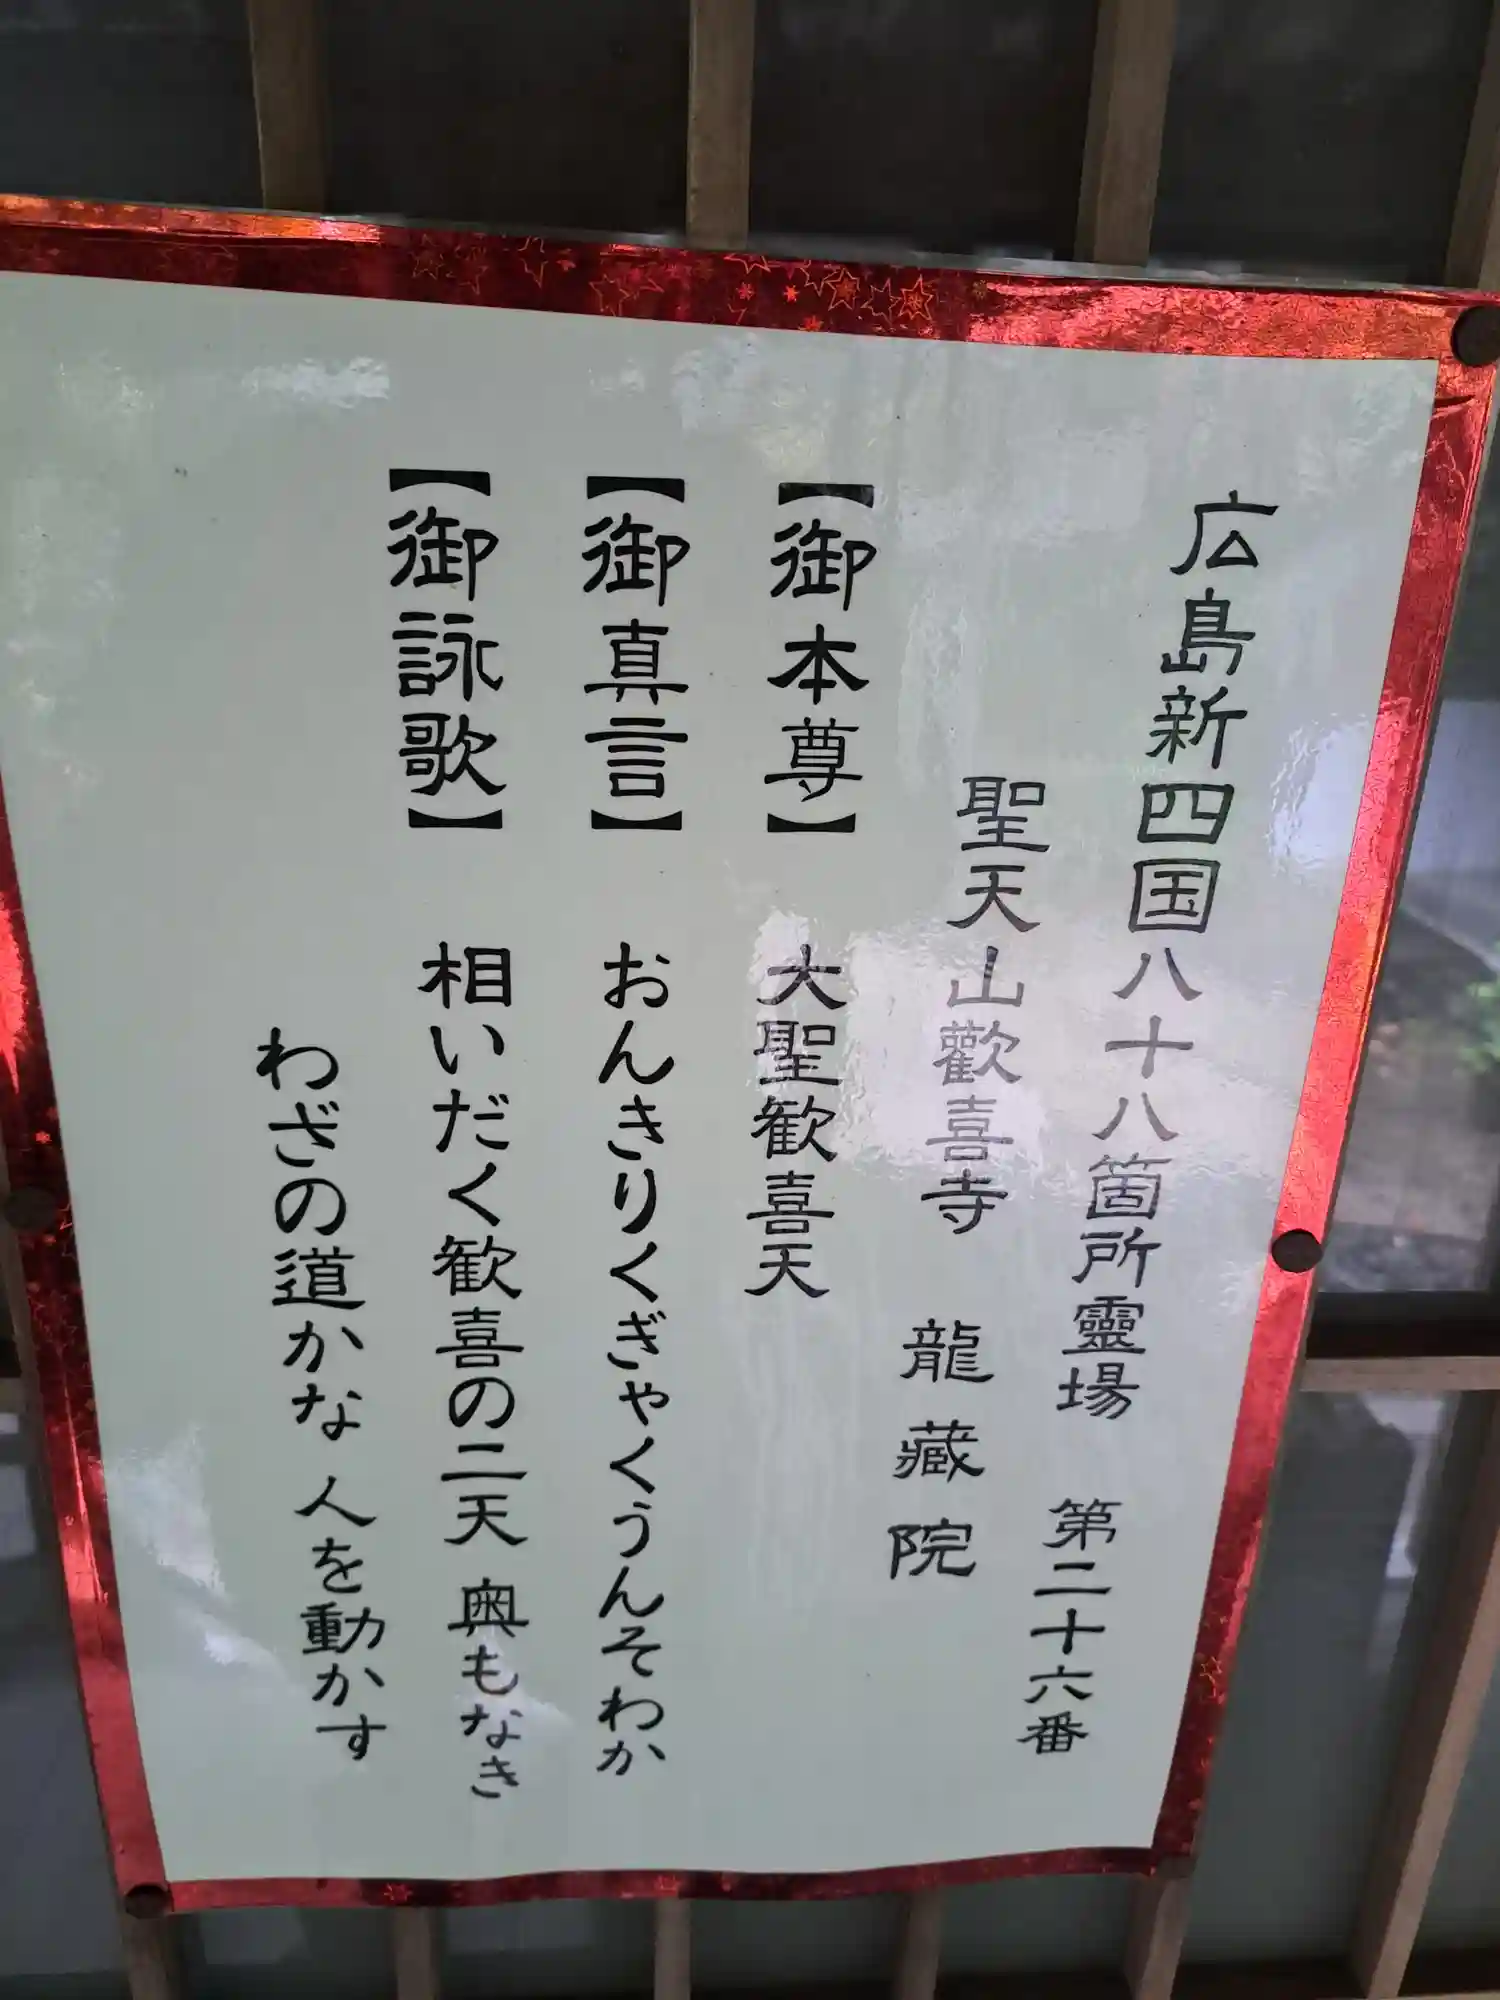 広島新四国八十八箇所靈場 第二十六番
聖天山歡喜寺 龍藏院
【御本尊】 大聖歓喜天
【御真言】 おんきりくぎゃくうんそわか
【御詠歌】 相いだく歓喜の二天 奥もなき
わざの道かな 人を動かす